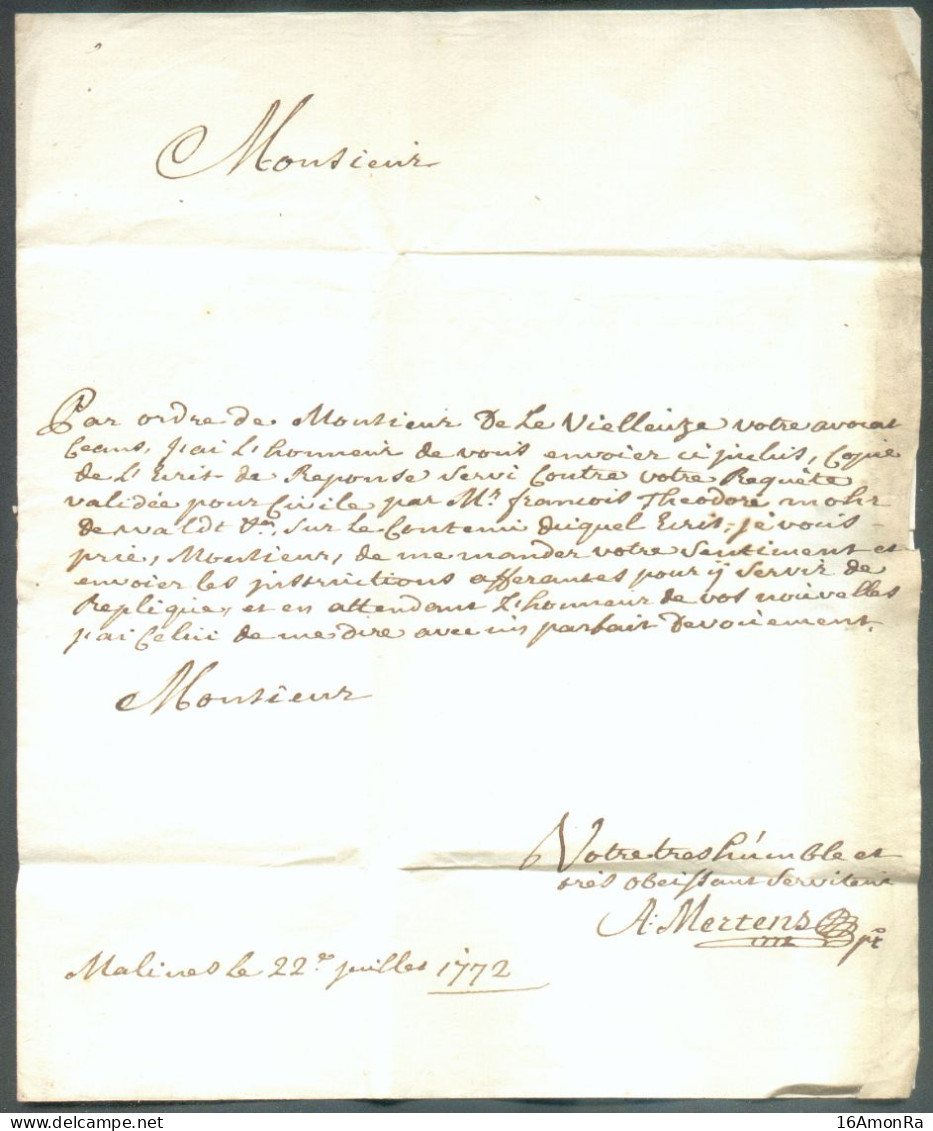 Monsieur
Par ordre de Monsieur De Le Vielleuze votre avocat
Ceans, j'ai L'honneur de vous envoier ci julis, Copie
de L'Ecrit de Reponse servi Contre votre Requête
validée pour Civile par Mr. francois Theodore mohr
de waldt &a, sur le Contenu duquel Ecrit, je vous
prie, Monsieur, de me mander votre Sentiment et
envoier les jnstructions afferantes pour ÿ servir de
Replique, et en attendant L'honneur de vos nouvelles
j'ai Celui de me dire avec un parfait Devouement.
Monsieur
Votre tres húmble et
tres obeissant Serviteur
A: Mertens pr
Malines le 22e juillet 1772
16AmonRa